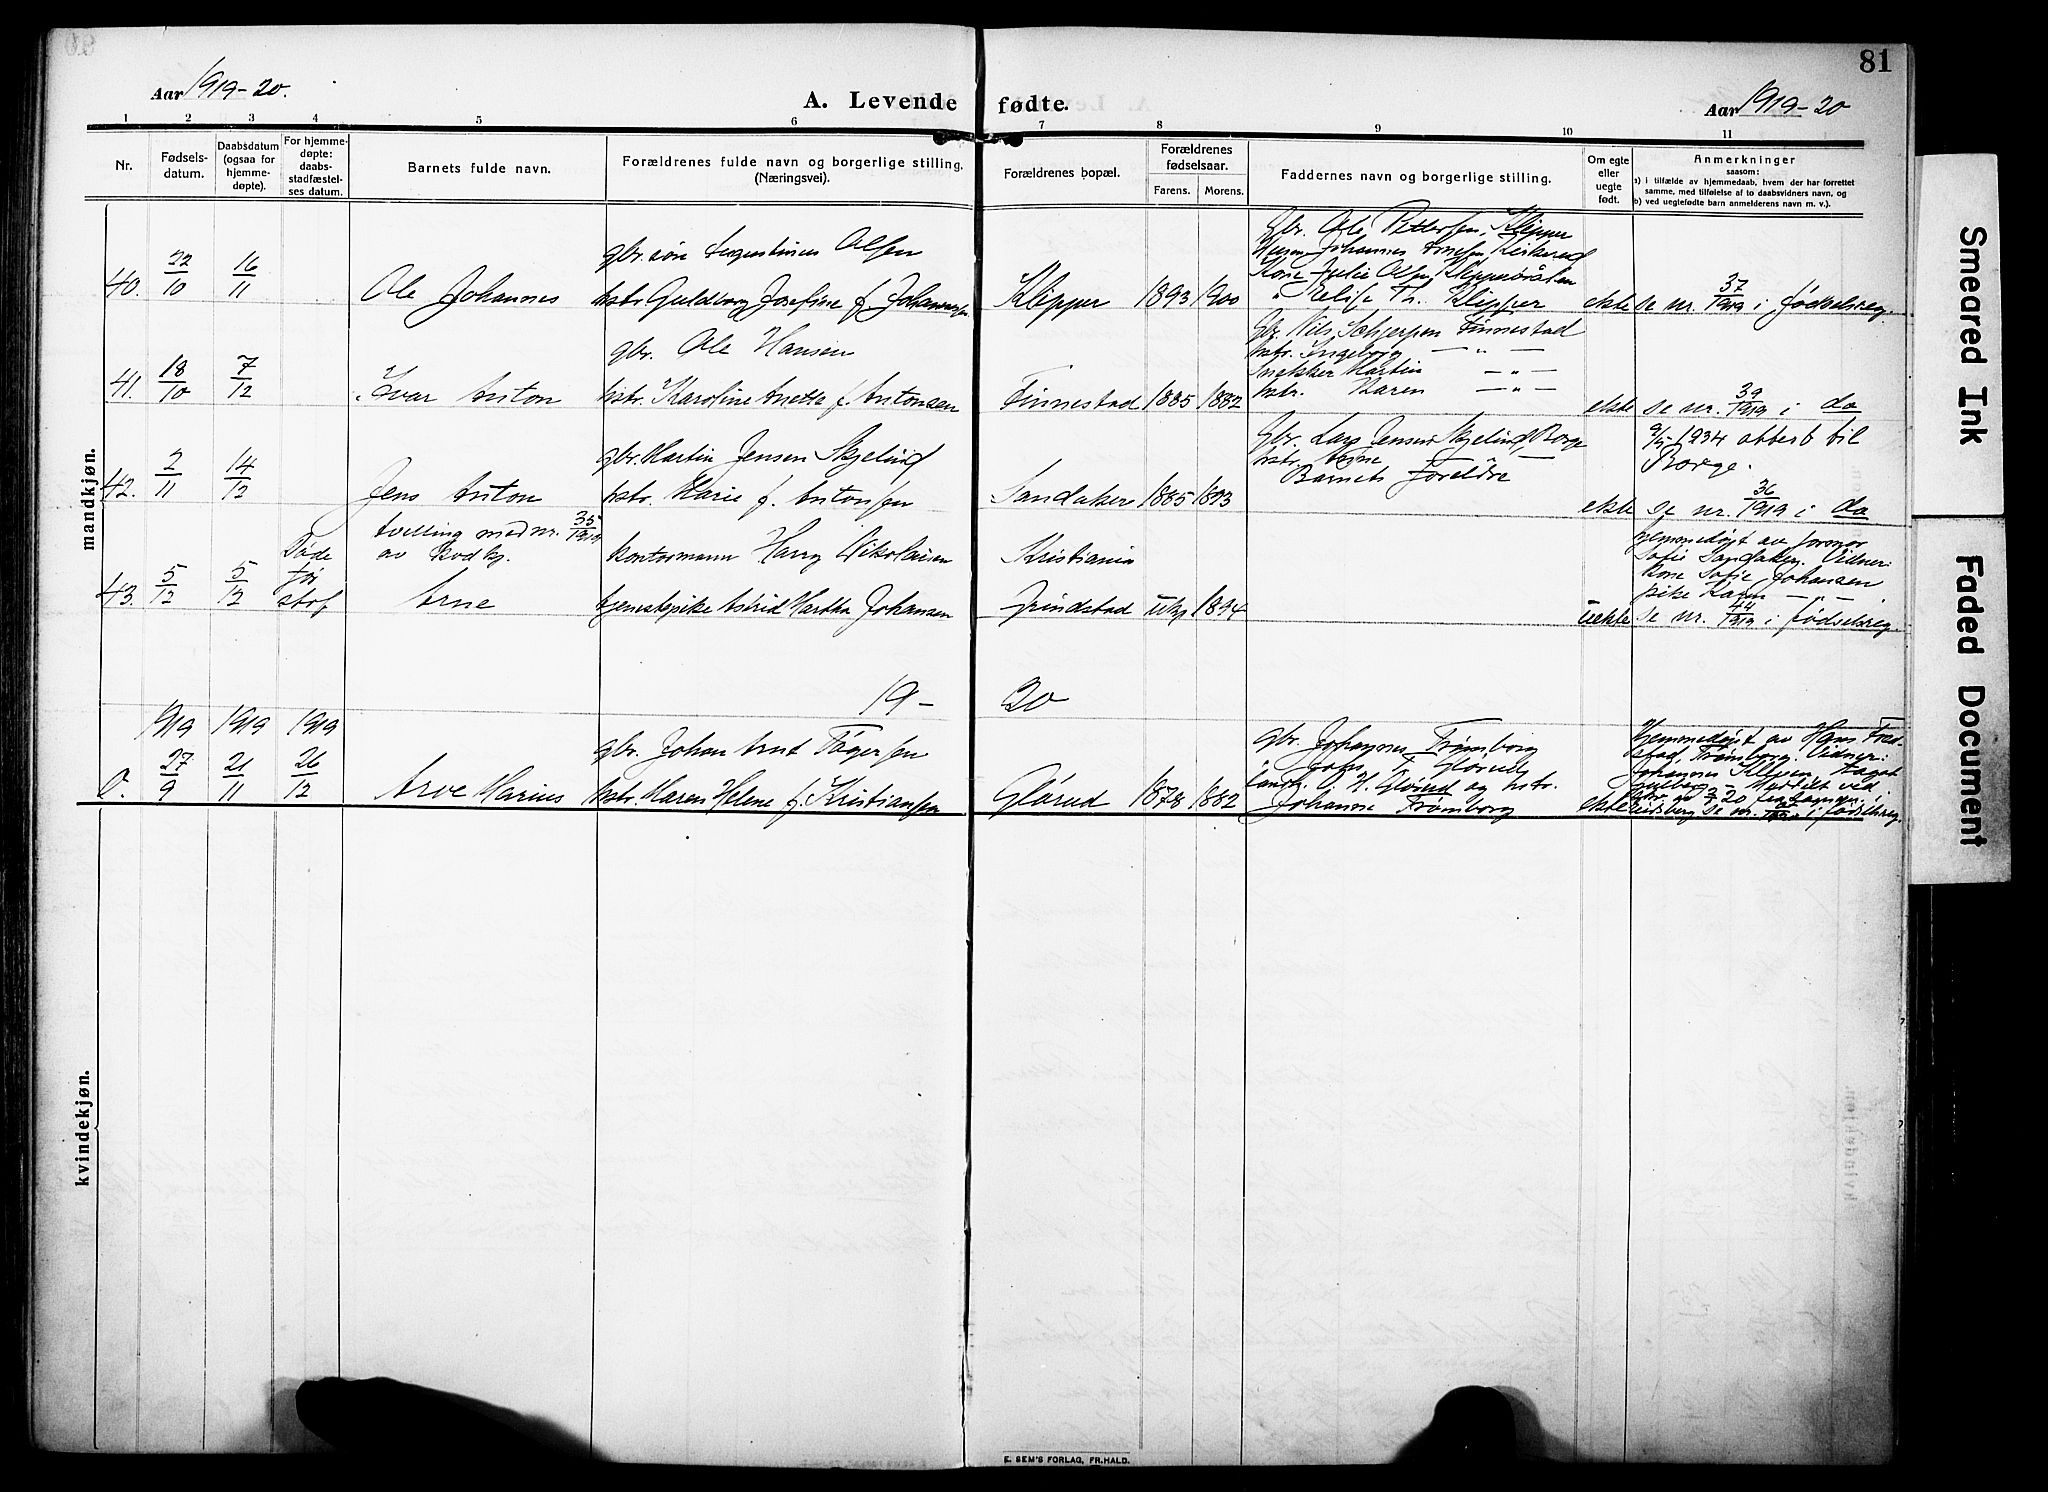 81
Aar 1919-20.
A. Levende fødte.
Aar 1919-20
1 2 3 4 5 6 7 8 9 10 11
Nr.
Fødsels-
datum.
Daabsdatum
(ogsaa for
hjemme-
døpte).
For hjemme-
døpte:
daabs-
stadfæstel-
ses datum.
Barnets fulde navn.
Forældrenes fulde navn og borgerlige stilling.
(Næringsvei).
Forældrenes bopæl.
Forældrenes
fødselsaar.
Farens. Morens.
Faddernes navn og borgerlige stilling.
Om egte
eller
uegte
født.
Anmerkninger
saasom:
a) i tilfælde av hjemmedaab, hvem der har forrettet
samme, med tilføielse af to daabsvidners navn, og
b) ved uegtefødte barn anmelderens navn m. v.).
mandkjøn.
40. 22/10 16/11
Ole Johannes
gbr. søn Augustinus Olsen
hstr. Guldborg Josefine f. Johannessen
Klipper 1893 1900
Gbr. Ole Pettersen, Klipper
Johannes
Kone Julie Olsen
Th. Klipper
ekte se nr. 37/1919 i fødselsreg.
41. 18/10 7/12
Ivar Anton
gbr. Ole Hansen
hstr. Karoline Anette f. Antonsen
Finnestad 1885 1882
Gbr. Nils Finnestad
hstr. Ingeborg — " —
Snekker Martin — " —
hstr. Karen — " —
ekte se nr. 39/1919 i do
42. 2/11 14/12
Jens Anton
gbr. Martin Jensen Skjelin
hstr. Marie f. Antonsen
Sandaker 1885 1893
Gbr. Lars Jensen Skjelin, Borge
hstr. — " —
Barnets foreldre
1934 attest til
Borge.
ekte se nr. 36/1919 i do
43. 5/12 5/12
Døde
før
staf.
tvilling med nr. 35/1919
av
Arne
kontormann Harry Nikolaisen
tjenestepike Astrid Martha Johansen
Kristiania
Grindstad ukj. 1894
uekte
hjemmedøpt av jormor
Sofie Sandaker. Vidner:
Kone Sofie Johansen
pike Karen — " —
se nr. 44/1919 i fødselsreg.
19 - 20
1919 1919 1919
0. 27/9 21/11 26/12
Arve Marius
gbr. Johan Arnt Tøgersen
hstr. Maren Helene f. Kristiansen
Glørud 1878 1882
gbr. Johannes Trømborg
Johs. T. Glørud
landh. O. H. Glørud og hstr.
Johanne Trømborg
ekte
Hjemmedøpt av Hans Fred-
stad, Trømborg. Vidner:
Johannes
Meddelt ved
Eidsberg se nr. i fødselsreg.
kvindekjøn.
E. SEM'S FORLAG, FR.HALD.
Smeared Ink
Faded Document